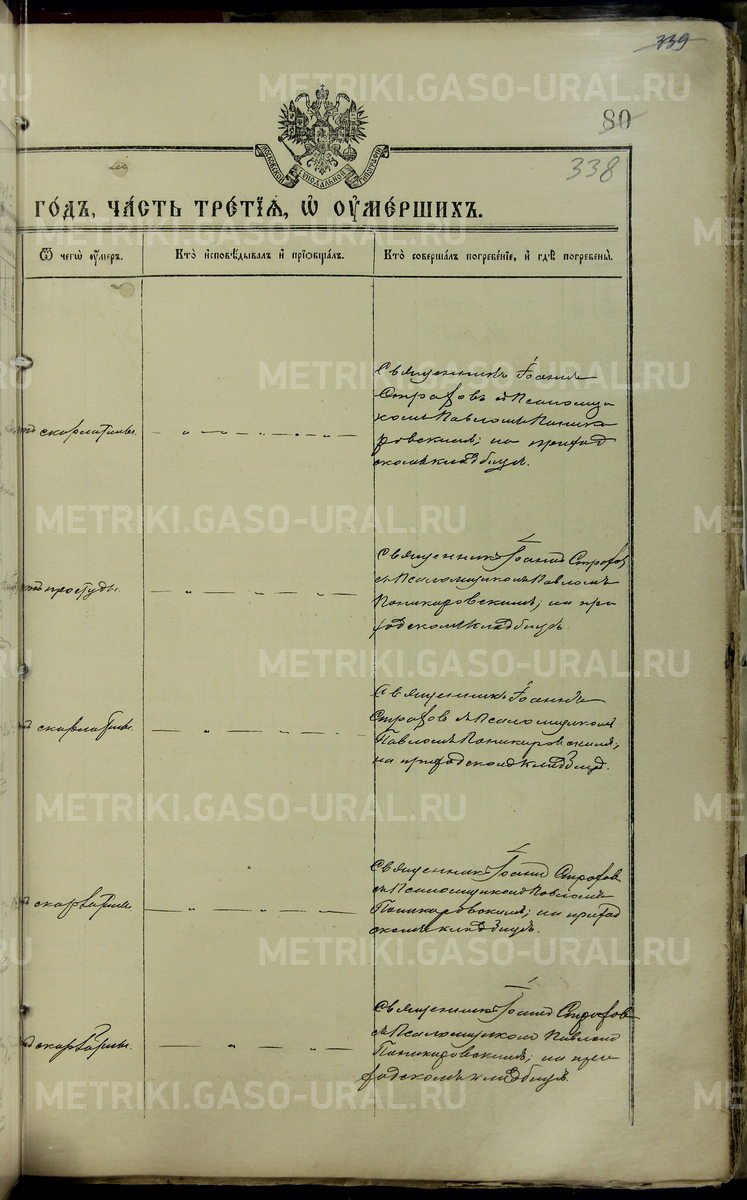 339
80
338
МОСКОВСКОЙ СѴНОДАЛЬНОЙ ТИПОГРАФІИ
ГО́ДЪ, ЧА́СТЬ ТРЕ́ТІѦ, Ѡ᾽ ОУ҆МЕ́РШИХЪ.
Ѿ чегѡ̀ ᲂу҆́меръ.
Кто̀ и҆сповѣ́дывалъ и҆ прїѡбща́лъ.
Кто̀ соверша́лъ погребе́нїе, и҆ гдѣ̀ погребены̀.
скарлатины.
Священникъ Іоаннъ
Строговъ съ Псаломщи
комъ Павломъ Поника
ровскимъ; на приход
скомъ кладбищѣ.
простуды.
Священникъ Іоаннъ Строгов
съ Псаломщикомъ Павломъ
Поникаровскимъ; на при
ходскомъ кладбищѣ.
скарлатины.
Священникъ Іоаннъ
Строгов съ Псаломщиком
Павломъ Поникаровскимъ;
на приходском кладбищѣ.
скарлатины.
Священникъ Іоаннъ Строгов
съ Псаломщиком Павломъ
Поникаровскимъ; на приход
скомъ кладбищѣ.
скарлатины.
Священникъ Іоаннъ Строгов
съ Псаломщиком Павлом
Поникаровскимъ; на при
ходскомъ кладбищѣ.
METRIKI.GASO-URAL.RU